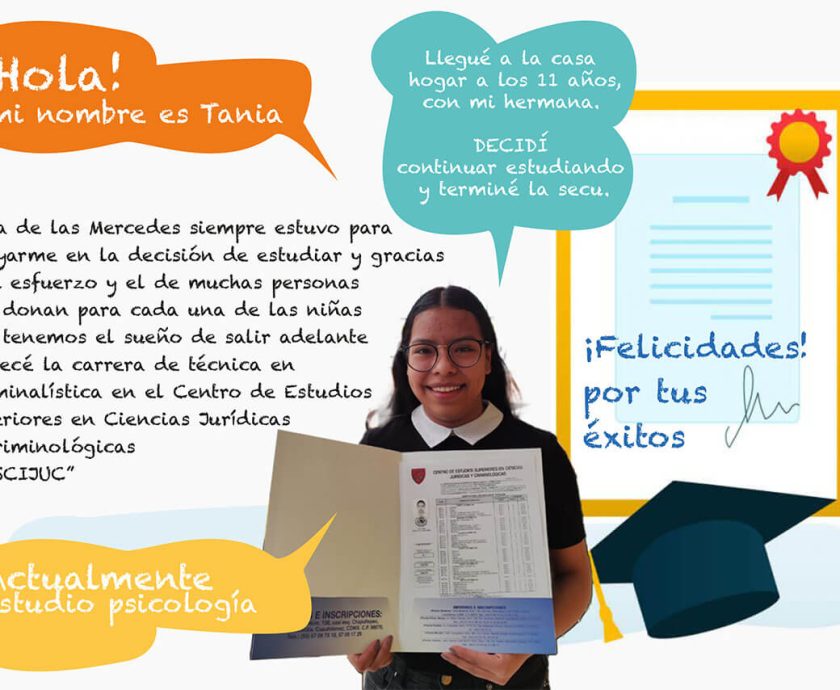 ¡Hola!
mi nombre es Tania
Llegué a la casa
hogar a los 11 años,
con mi hermana.
DECIDÍ
continuar estudiando
y terminé la secu.
a de las Mercedes siempre estuvo para
yarme en la decisión de estudiar y gracias
esfuerzo y el de muchas personas
donan para cada una de las niñas
tenemos el sueño de salir adelante
ecé la carrera de técnica en
minalística en el Centro de Estudios
eriores en Ciencias Jurídicas
riminológicas
SCIJUC”
Actualmente
estudio psicología
¡Felicidades!
por tus
éxitos
CENTRO DE ESTUDIOS SUPERIORES EN CIENCIAS
JURIDICAS Y CRIMINOLOGICAS
E INSCRIPCIONES:
INFORMES E INSCRIPCIONES: